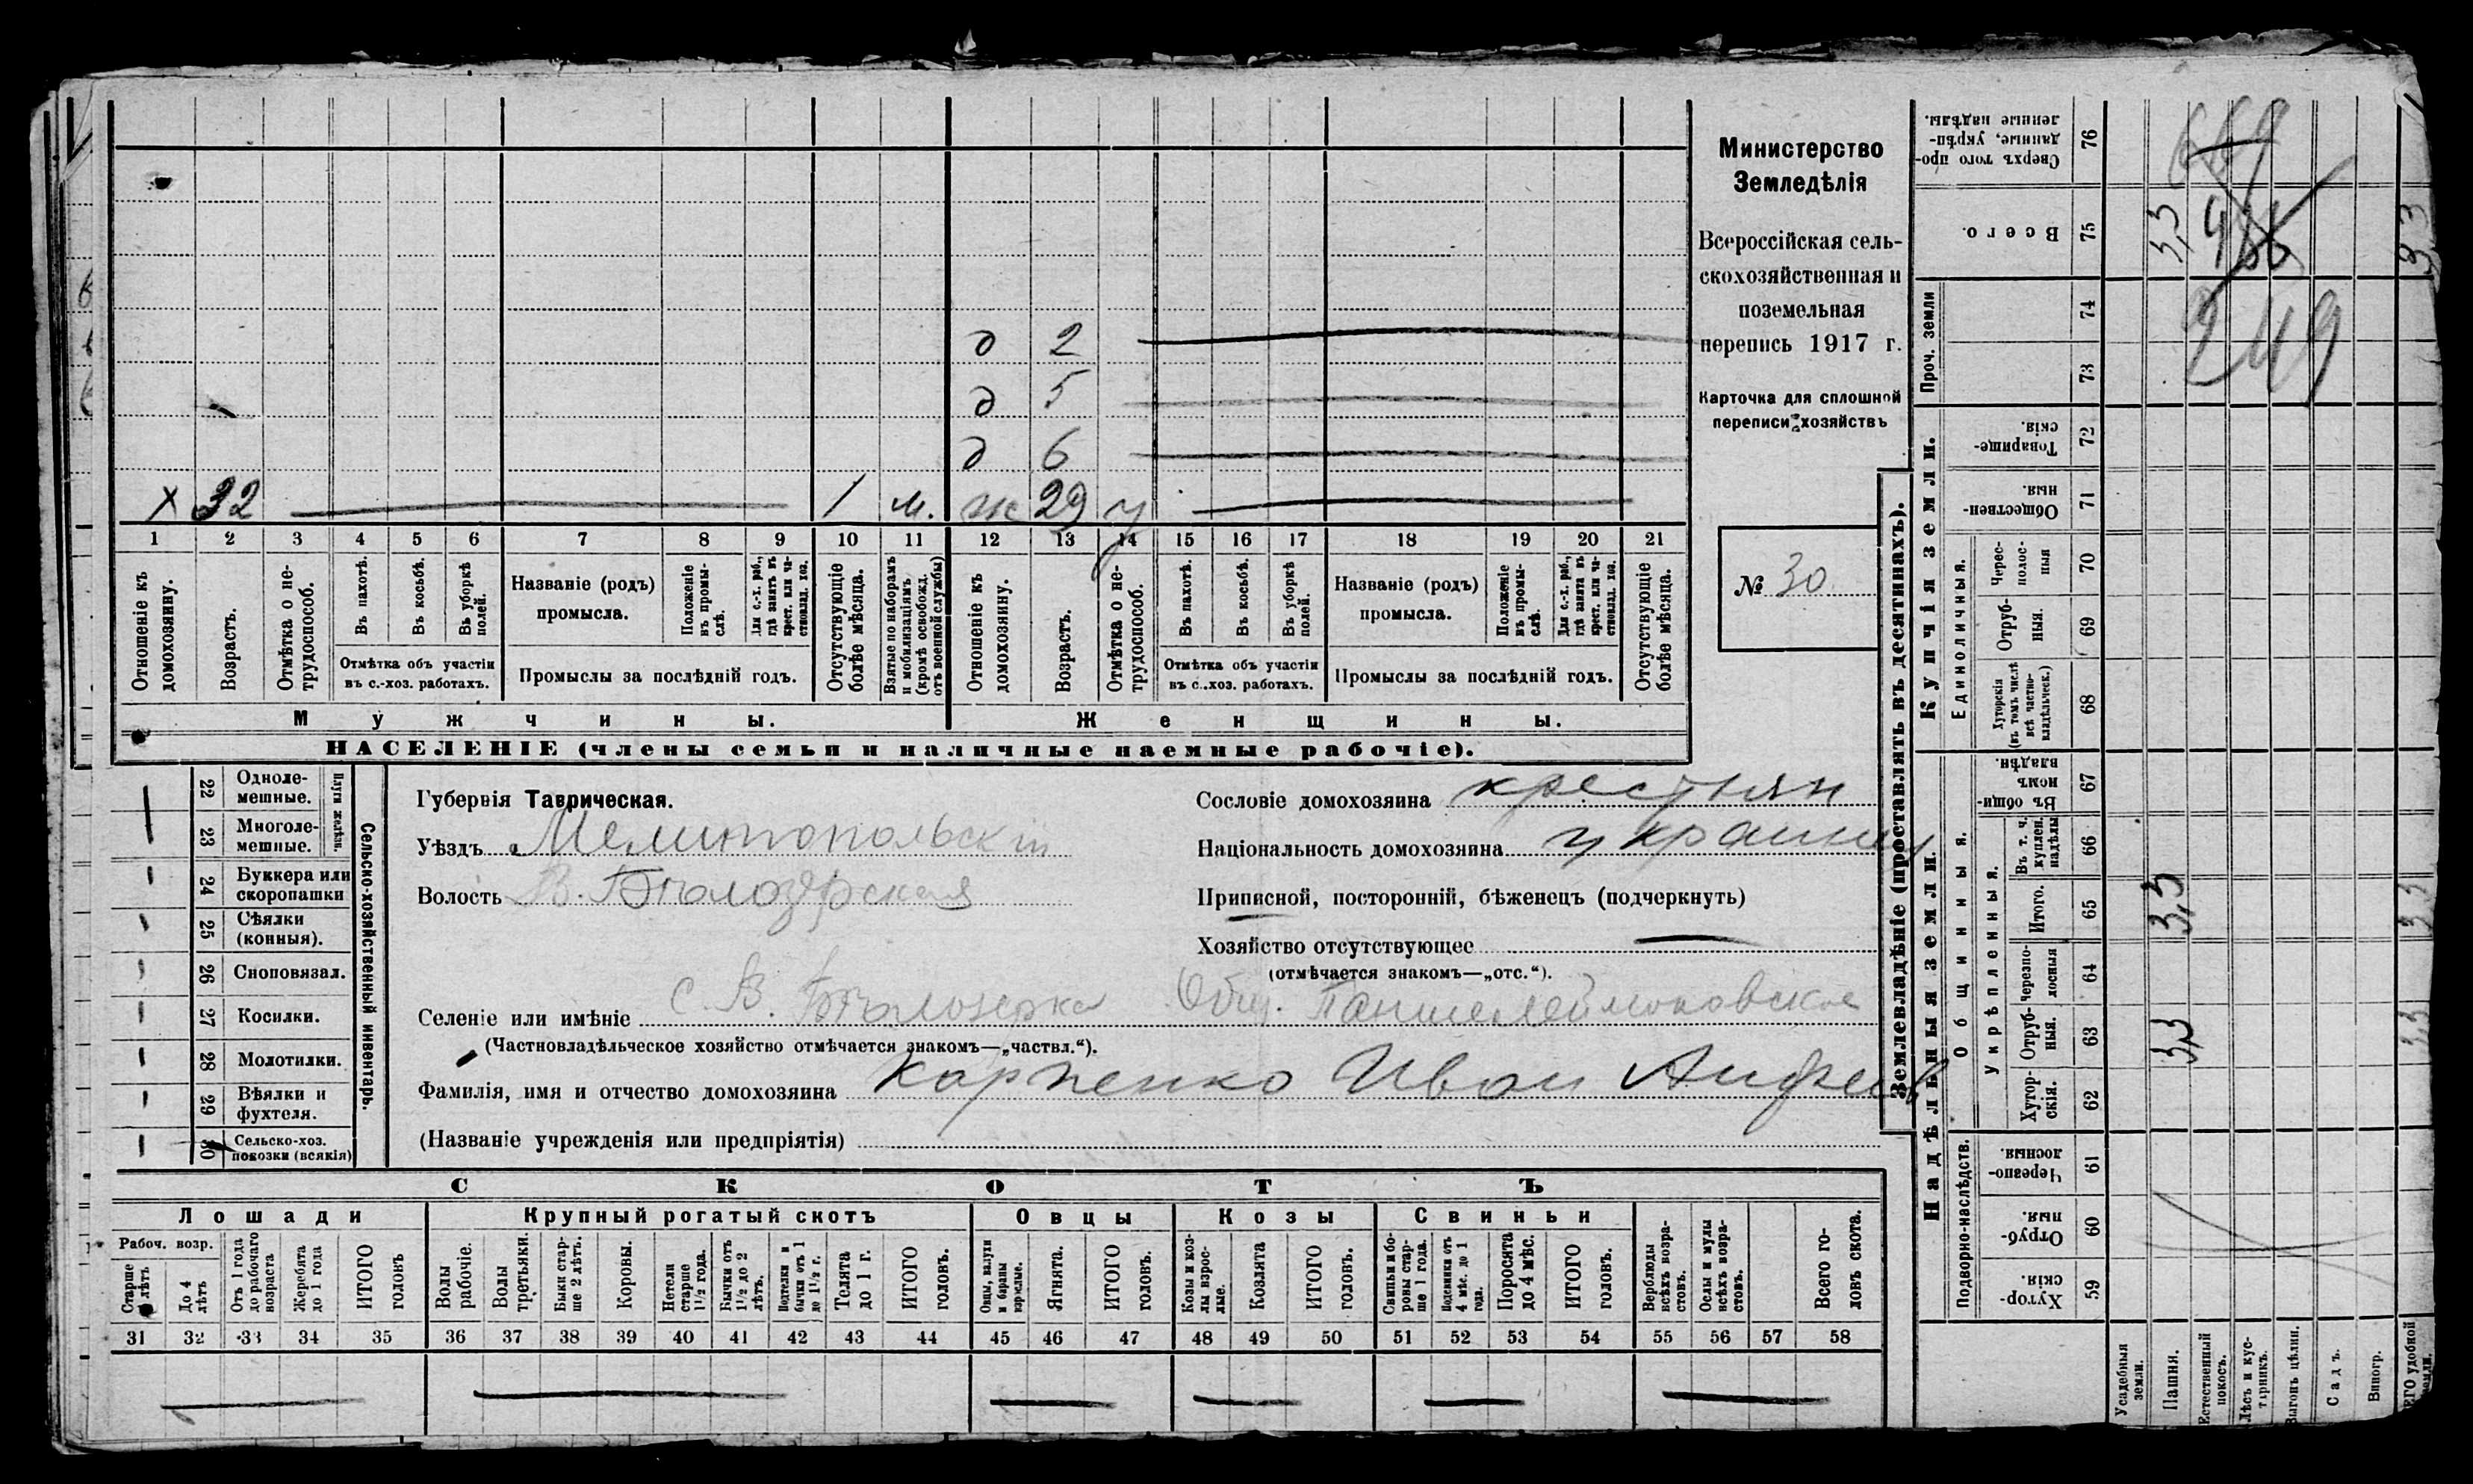 Министерство
Земледѣлія
Всероссійская сель-
скохозяйственная и
поземельная
перепись 1917 г.
Карточка для сплошной
переписи хозяйствъ
№ 30
д 2
д 5
д 6
х 32 1 м. ж 29 у
1 2 3 4 5 6 7 8 9 10 11 12 13 14 15 16 17 18 19 20 21
Отношеніе къ домохозяину.
Возрастъ.
Отмѣтка о не-трудоспособ.
Въ пахотѣ.
Въ косьбѣ.
Въ уборкѣ полей.
Отмѣтка объ участіи
въ с.-хоз. работахъ.
Названіе (родъ)
промысла.
Положеніе въ промы-слѣ.
Для с.-х. раб., гдѣ занятъ въ крест. или ча-ствовлад. хоз.
Промыслы за послѣдній годъ.
Отсутствующіе болѣе мѣсяца.
Взятые по наборамъ и мобилизаціямъ (кромѣ освобожд. отъ военной службы)
Отношеніе къ домохозяину.
Возрастъ.
Отмѣтка о не-трудоспособ.
Въ пахотѣ.
Въ косьбѣ.
Въ уборкѣ полей.
Отмѣтка объ участіи
въ с.-хоз. работахъ.
Названіе (родъ)
промысла.
Положеніе въ промы-слѣ.
Для с.-х. раб., гдѣ занятъ въ крест. или ча-ствовлад. хоз.
Промыслы за послѣдній годъ.
Отсутствующіе болѣе мѣсяца.
Мужчины.
Женщины.
НАСЕЛЕНІЕ (члены семьи и наличные наемные рабочіе).
Сельско-хозяйственный инвентарь.
Плуги желѣзн.
22 Одноле-мешные.
23 Многоле-мешные.
24 Буккера или скоропашки
25 Сѣялки (конныя).
26 Сноповязал.
27 Косилки.
28 Молотилки.
29 Вѣялки и фухтеля.
30 Сельско-хоз. повозки (всякія)
Губернія Таврическая.
Уѣздъ Мелитопольскій
Волость В. Бѣлозерская
Сословіе домохозяина крестьян
Національность домохозяина украинец
Приписной, посторонній, бѣженецъ (подчеркнуть)
Хозяйство отсутствующее
(отмѣчается знакомъ—„отс.“).
Селеніе или имѣніе с. В. Бѣлозерка Общ. Пантелеймоновское
(Частновладѣльческое хозяйство отмѣчается знакомъ—„частвл.“).
Фамилія, имя и отчество домохозяина Карпенко Иван
(Названіе учрежденія или предпріятія)
СКОТЪ
Лошади
Крупный рогатый скотъ
Овцы
Козы
Свиньи
Рабоч. возр.
Старше 4 лѣтъ
До 4 лѣтъ
Отъ 1 года до рабочаго возраста
Жеребята до 1 года
ИТОГО головъ
Волы рабочіе.
Волы третьяки.
Быки стар-ше 2 лѣтъ.
Коровы.
Нетели старше 1½ года.
Бычки отъ 1½ до 2 лѣтъ.
Подтелки и бычки отъ 1 до 1½ г.
Телята до 1 г.
ИТОГО головъ.
Овцы, валухи и бараны взрослые.
Ягнята.
ИТОГО головъ.
Козы и коз-лы взрос-лые.
Козлята
ИТОГО головъ.
Свиньи и бо-ровы стар-ше 1 года.
Подсвинки отъ 4 мѣс. до 1 года.
Поросята до 4 мѣс.
ИТОГО головъ.
Верблюды всѣхъ возра-стовъ.
Ослы и мулы всѣхъ возра-стовъ.
Всего го-ловъ скота.
31 32 33 34 35 36 37 38 39 40 41 42 43 44 45 46 47 48 49 50 51 52 53 54 55 56 57 58
Землевладѣніе (проставлять въ десятинахъ).
Надѣльныя земли.
Купчія земли.
Проч. земли
Подворно-наслѣдств.
Общинныя.
Укрѣпленныя.
Единоличныя.
Хутор-скія. 59
Отруб-ныя. 60
Черезпо-лосныя. 61
Хутор-скія. 62
Отруб-ныя. 63 3,3 3,3
Черезпо-лосныя 64
Итого. 65 3,3 3,3
Въ т. ч. куплен. надѣлы 66
Въ общи-номъ владѣн. 67
Хуторскія (въ томъ числѣ всѣ частно-владѣльческ.) 68
Отруб-ныя. 69
Черес-полос-ныя 70
Обществен-ныя. 71
Товарище-скія. 72
73
74
Всего. 75 3,3 33
Сверхъ того про-данные, укрѣп-ленные надѣлы. 76
249
Усадебныя земли.
Пашня.
Естественный покосъ.
Лѣсъ и кус-тарникъ.
Выгонъ цѣлин.
Садъ.
Виногр.